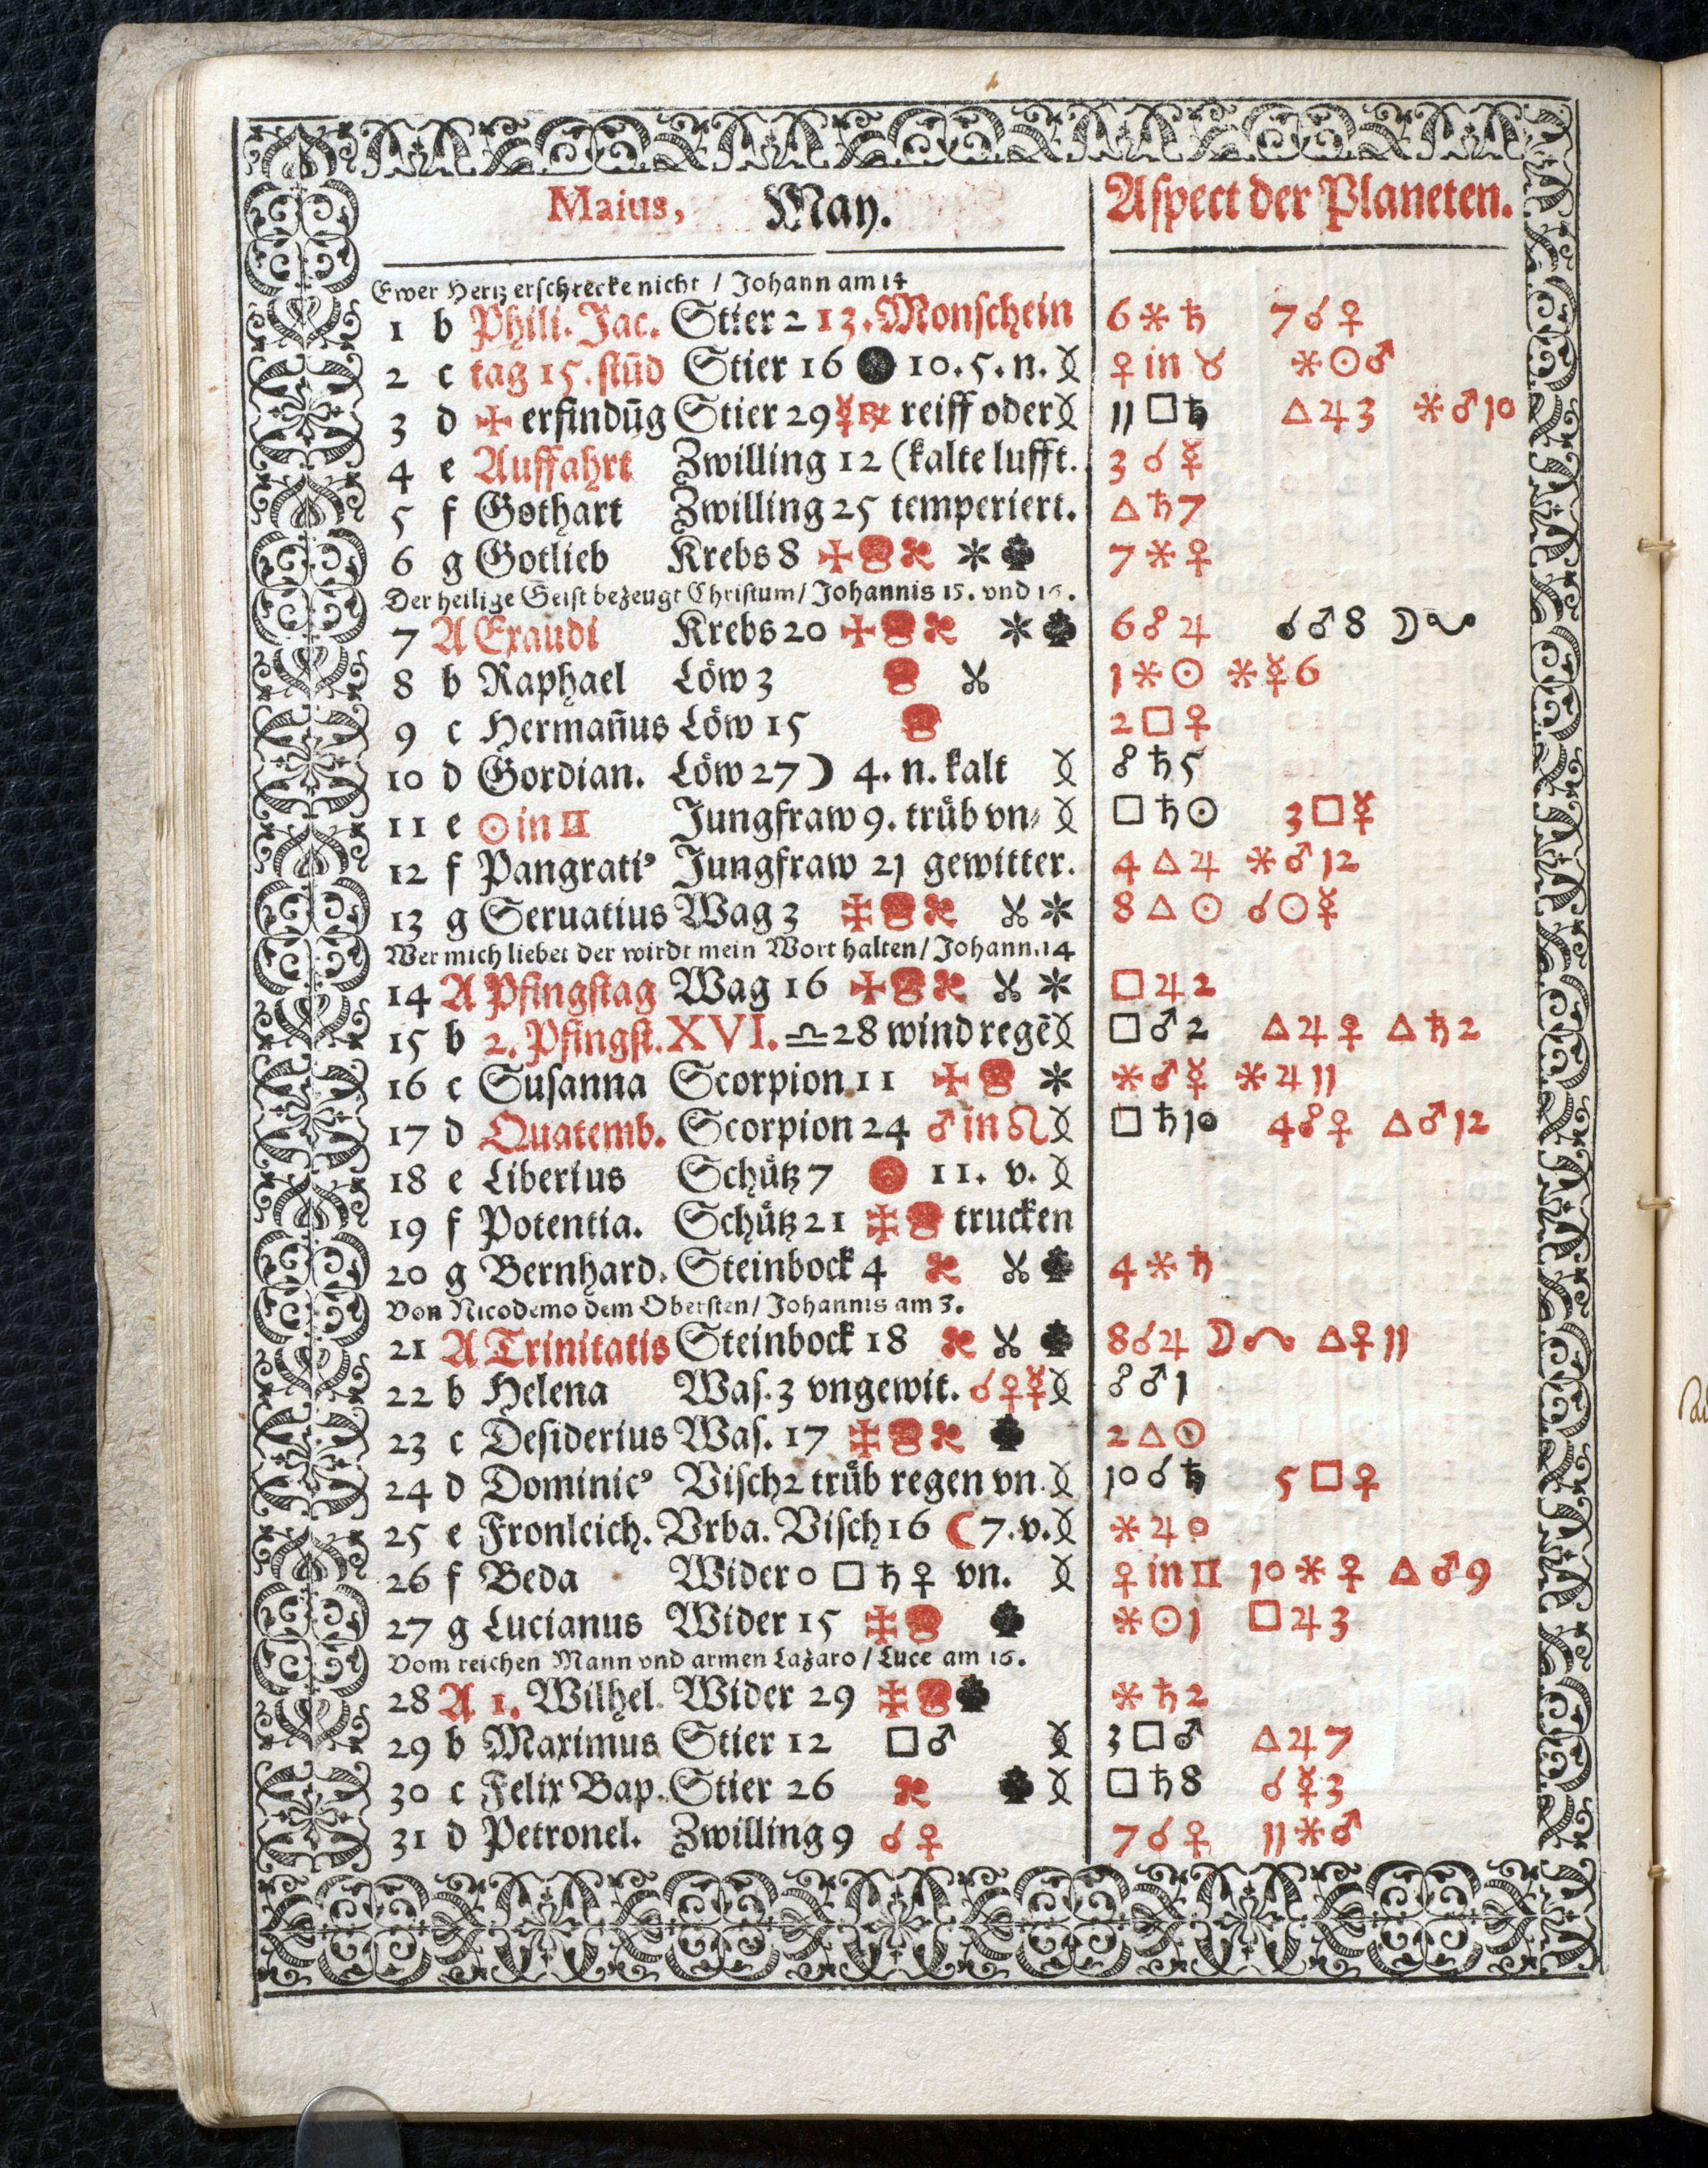 Maius, May. Aspect der Planeten.
Ewer Hertz erschrecke nicht / Johann am 14
1 b Phili. Jac. Stier 2 13. Monschein 6 ⚹ ♄ 7 ☌ ♀
2 c tag 15. stūd Stier 16 ● 10. 5. n. ♀ in ♉ ⚹ ☉ ♂
3 d ✠ erfindūg Stier 29 ☿ ℞ reiff oder 11 □ ♄ △ ♃ 3 ⚹ ♂ 10
4 e Auffahrt Zwilling 12 (kalte lufft. 3 ☌ ☿
5 f Gothart Zwilling 25 temperiert. △ ♄ 7
6 g Gotlieb Krebs 8 7 ⚹ ♀
Der heilige Geist bezeugt Christum / Johannis 15. vnd 16.
7 A Exaudi Krebs 20 6 ☍ ♃ ☌ ♂ 8 ☽ ☋
8 b Raphael Löw 3 1 ⚹ ☉ ⚹ ☿ 6
9 c Hermañus Löw 15 2 □ ♀
10 d Gordian. Löw 27 ☽ 4. n. kalt ☍ ♄ 5
11 e ☉ in ♊ Jungfraw 9. trüb vn⸗ □ ♄ ☉ 3 □ ☿
12 f Pangratiꝰ Jungfraw 21 gewitter. 4 △ ♃ ⚹ ♂ 12
13 g Seruatius Wag 3 8 △ ☉ ☌ ☉ ☿
Wer mich liebet der wirdt mein Wort halten / Johann. 14
14 A Pfingstag Wag 16 □ ♃ 2
15 b 2. Pfingst. XVI. ♎ 28 wind regē □ ♂ 2 △ ♃ ♀ △ ♄ 2
16 c Susanna Scorpion 11 ⚹ ♂ ☿ ⚹ ♃ 11
17 d Quatemb. Scorpion 24 ♂ in ♌ □ ♄ 10 4 ☍ ♀ △ ♂ 12
18 e Liberius Schütz 7 11. v.
19 f Potentia. Schütz 21 trucken
20 g Bernhard. Steinbock 4 4 ⚹ ♄
Von Nicodemo dem Obersten / Johannis am 3.
21 A Trinitatis Steinbock 18 8 ☌ ♃ ☽ ☊ △ ♀ 11
22 b Helena Was. 3 vngewit. ☌ ♀ ☿ ☍ ♂ 1
23 c Desiderius Was. 17 2 △ ☉
24 d Dominicꝰ Visch 2 trüb regen vn. 10 ☌ ♄ 5 □ ♀
25 e Fronleich. Vrba. Visch 16 ☾ 7. v. ⚹ ♃ 0
26 f Beda Wider 0 □ ♄ ♀ vn. ♀ in ♊ 10 ⚹ ♀ △ ♂ 9
27 g Lucianus Wider 15 ⚹ ☉ 1 □ ♃ 3
Vom reichen Mann vnd armen Lazaro / Luce am 16.
28 A 1. Wilhel. Wider 29 ⚹ ♄ 2
29 b Maximus Stier 12 □ ♂ 3 □ ♂ △ ♃ 7
30 c Felix Bap. Stier 26 □ ♄ 8 ☌ ☿ 3
31 d Petronel. Zwilling 9 ☌ ♀ 7 ☌ ♀ 11 ⚹ ♂